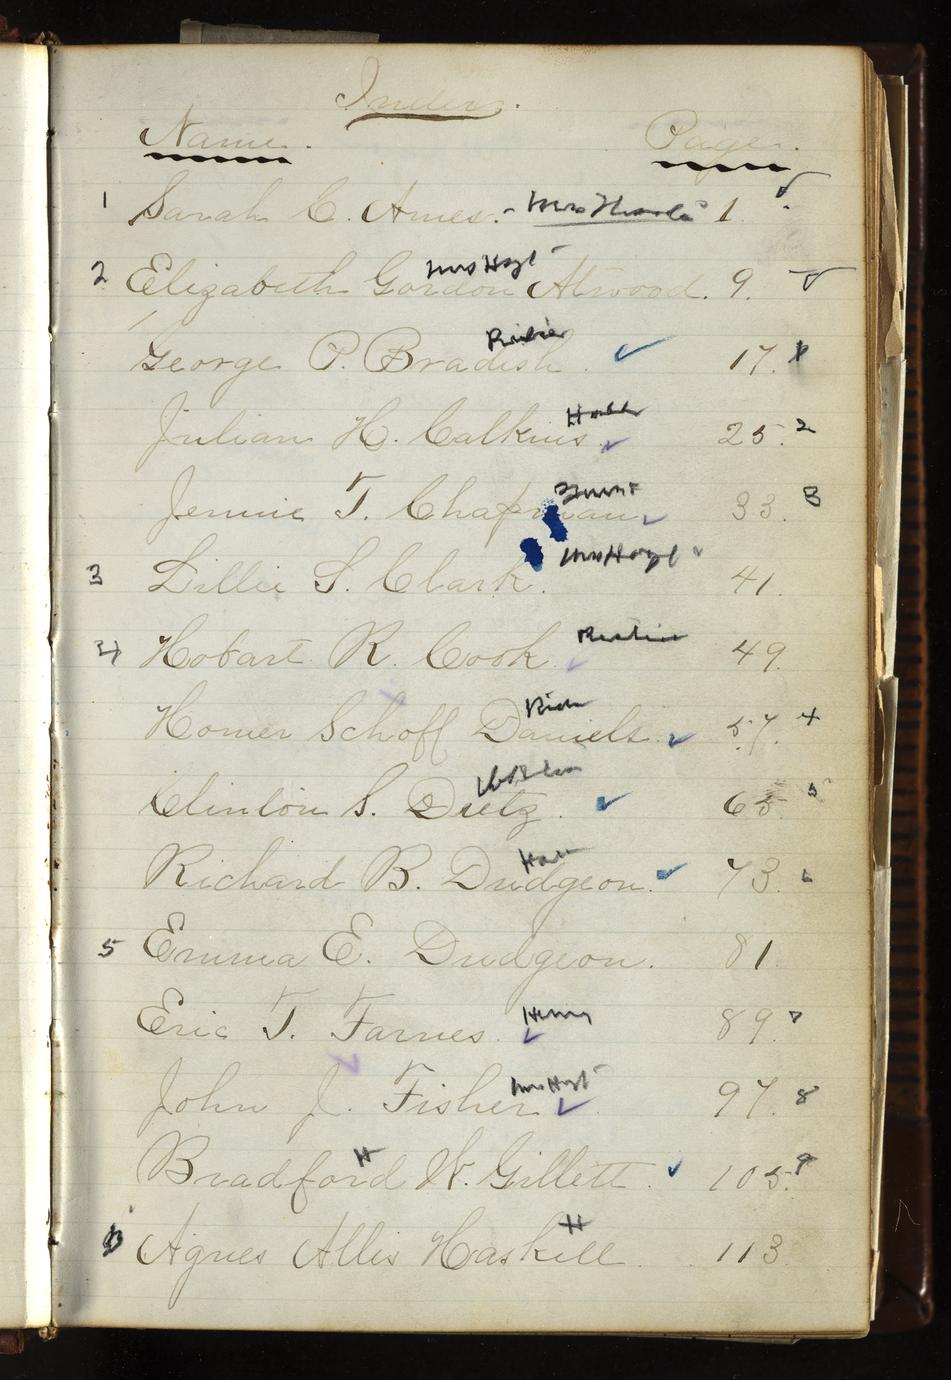 Index.
Name. Page.
1 Sarah C. Ames. - Mrs 1.
Mrs Hoyt
2 Elizabeth Gordon Atwood. 9.
George P. Bradish. 17. 1
Julian H. Calkins. 25. 2
Jennie T. Chapman 33. 3
Mrs Hoyt
3 Lillie S. Clark. 41.
4 Hobart R. Cook 49.
Homer Schoff Daniels. 57. 4
Clinton S. Dietz. 65. 5
Richard B. Dudgeon. 73. 6
5 Emma E. Dudgeon. 81
Eric T. Farnes. 89. 7
Mrs Hoyt
John J. Fisher. 97. 8
H
Bradford W. Gillett. 105. 9
H
Agnes Allis Haskell. 113.